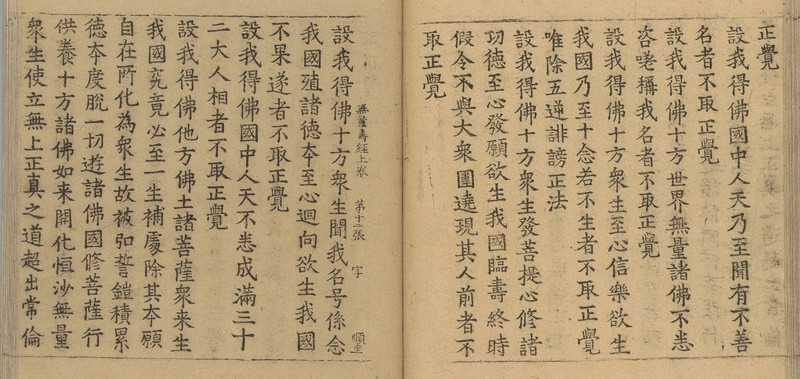 正覺
設我得佛國中人天乃至聞有不善
名者不取正覺
設我得佛十方世界無量諸佛不悉
咨嗟稱我名者不取正覺
設我得佛十方衆生至心信樂欲生
我國乃至十念若不生者不取正覺
唯除五逆誹謗正法
設我得佛十方衆生發菩提心修諸
功德至心發願欲生我國臨壽終時
假令不與大衆圍遶現其人前者不
取正覺
設我得佛十方衆生聞我名号係念
無量壽經上卷 第十二張 字
我國殖諸德本至心迴向欲生我國
不果遂者不取正覺
設我得佛國中人天不悉成滿三十
二大人相者不取正覺
設我得佛他方佛土諸菩薩衆来生
我國究竟必至一生補處除其本願
自在所化為衆生故被弘誓鎧積累
德本度脫一切遊諸佛國修菩薩行
供養十方諸佛如来開化恒沙無量
衆生使立無上正真之道超出常倫